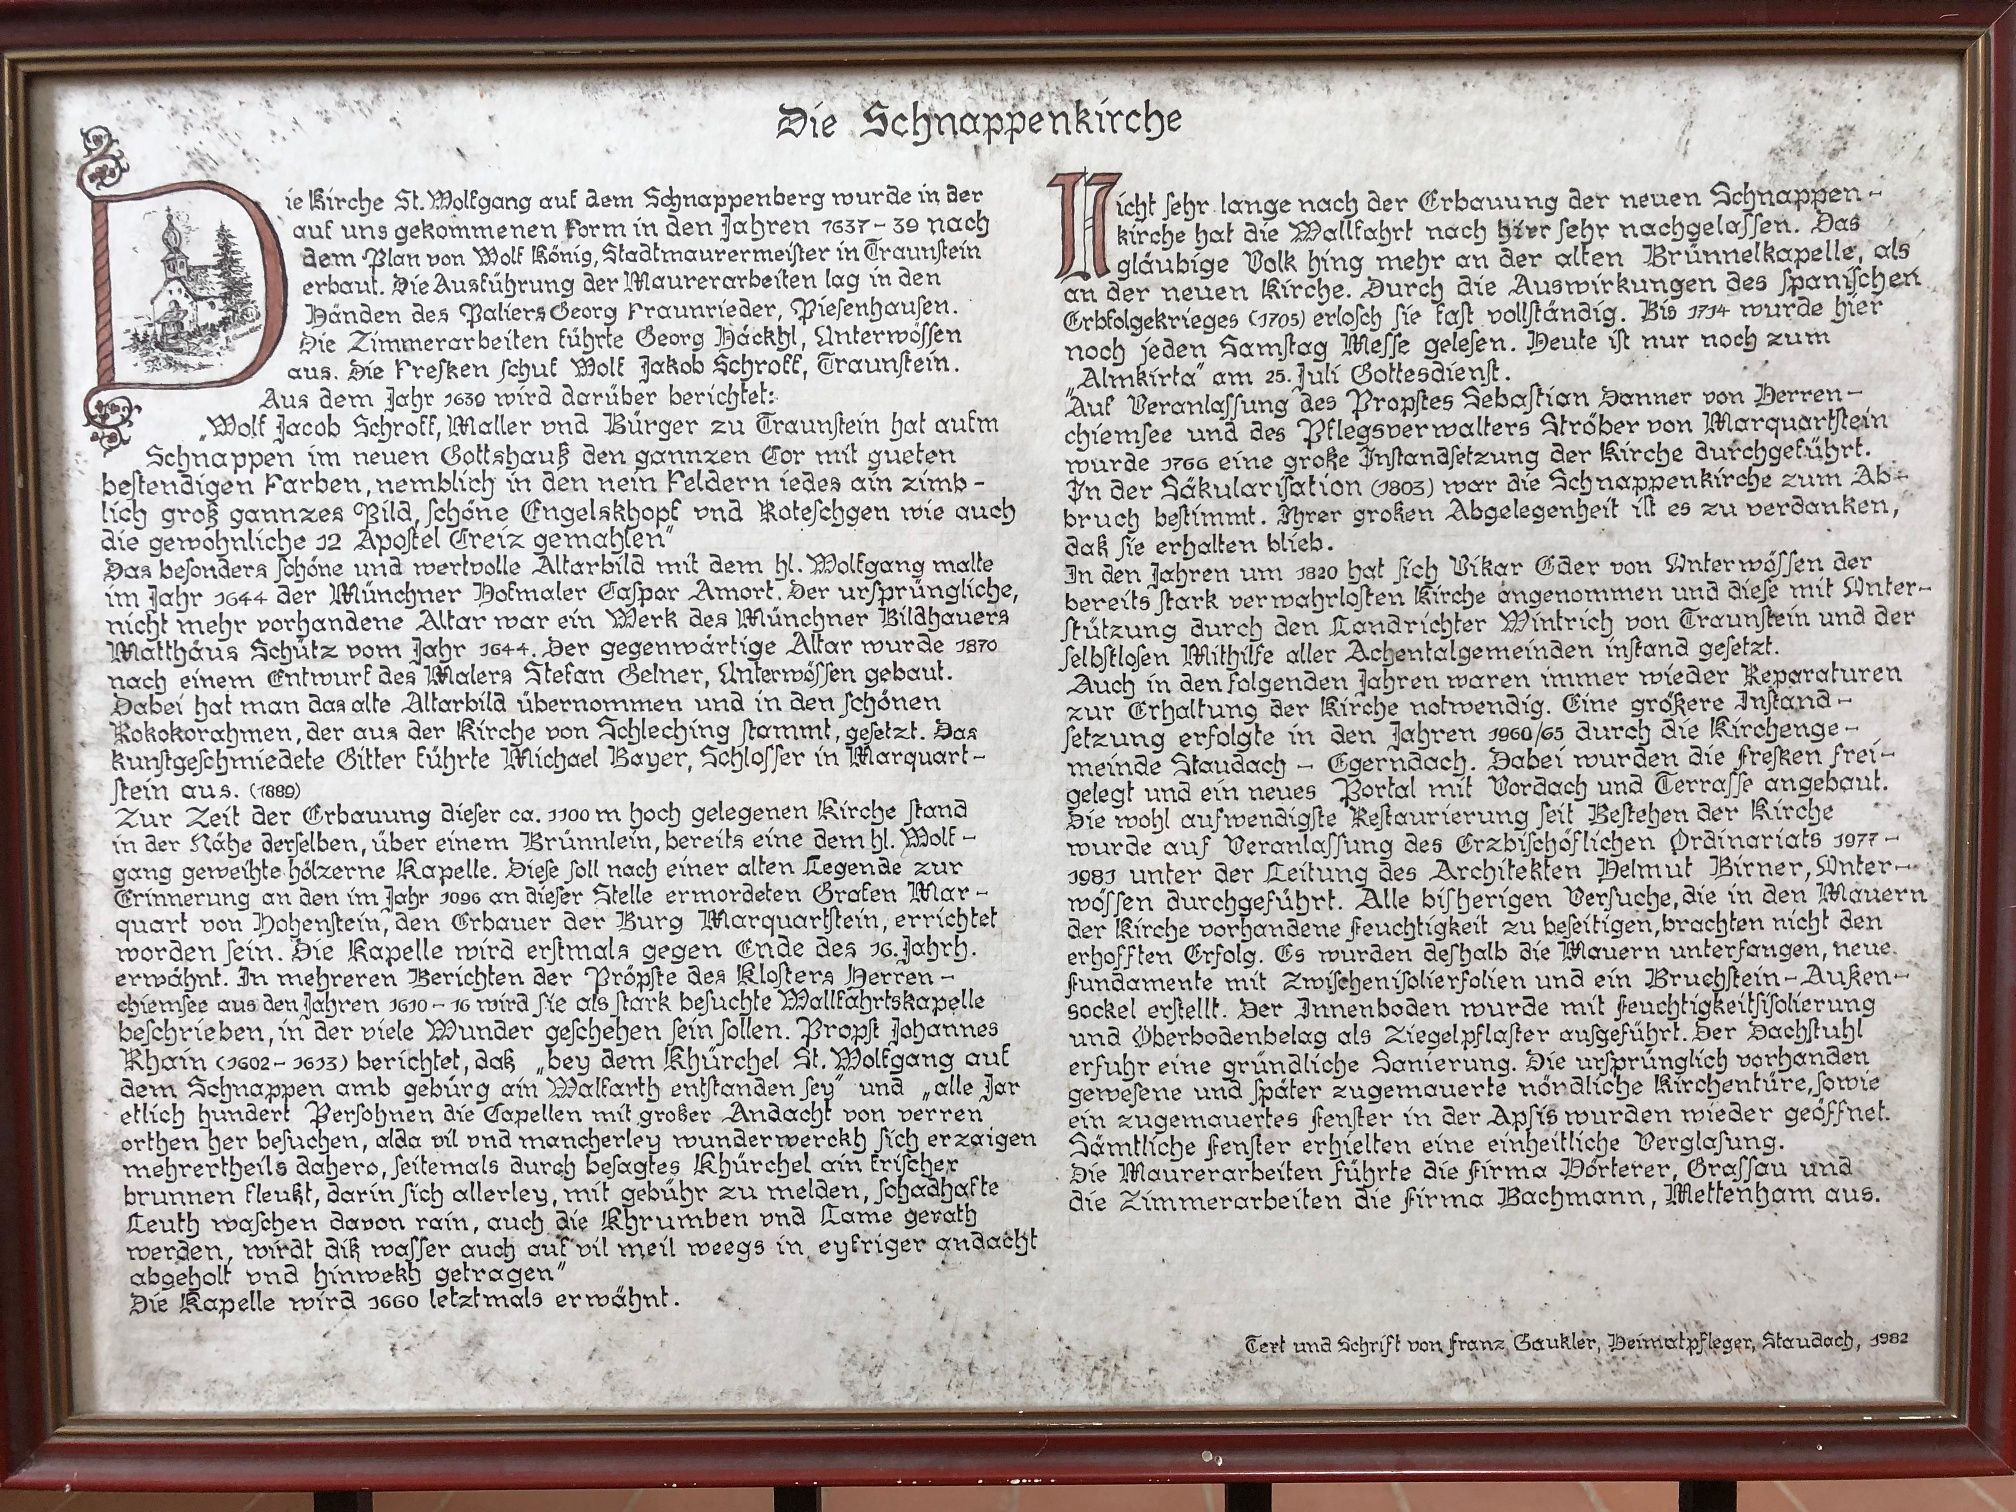 Die Schnappenkirche
Die Kirche St. Wolfgang auf dem Schnappenberg wurde in der
auf uns gekommenen Form in den Jahren 1637-39 nach
dem Plan von Wolf König, Stadtmaurermeister in Traunstein
erbaut. Die Ausführung der Maurerarbeiten lag in den
Händen des Paliers Georg Fraunrieder, Piesenhausen.
Die Zimmerarbeiten führte Georg Häckhl, Unterwössen
aus. Die Fresken schuf Wolf Jakob Schroff, Traunstein.
Aus dem Jahr 1639 wird darüber berichtet:
„Wolf Jacob Schroff, Maller vnd Bürger zu Traunstein hat aufm
Schnappen im neuen Gottshauß den gannzen Cor mit gueten
bestendigen Farben, nemblich in den nein Feldern iedes ain zimb-
lich groß gannzes Pild, schöne Engelskhopf vnd Roteschgen wie auch
die gewohnliche 12 Apostel Creiz gemahlen"
Das besonders schöne und wertvolle Altarbild mit dem hl. Wolfgang malte
im Jahr 1644 der Münchner Hofmaler Caspar Amort. Der ursprüngliche,
nicht mehr vorhandene Altar war ein Werk des Münchner Bildhauers
Matthäus Schütz vom Jahr 1644. Der gegenwärtige Altar wurde 1870
nach einem Entwurf des Malers Stefan Gelner, Unterwössen gebaut.
Dabei hat man das alte Altarbild übernommen und in den schönen
Rokokorahmen, der aus der Kirche von Schleching stammt, gesetzt. Das
kunstgeschmiedete Gitter führte Michael Bayer, Schlosser in Marquart-
stein aus. (1889)
Zur Zeit der Erbauung dieser ca. 1100 m hoch gelegenen Kirche stand
in der Nähe derselben, über einem Brünnlein, bereits eine dem hl. Wolf-
gang geweihte hölzerne Kapelle. Diese soll nach einer alten Legende zur
Erinnerung an den im Jahr 1096 an dieser Stelle ermordeten Grafen Mar-
quart von Hohenstein, den Erbauer der Burg Marquartstein, errichtet
worden sein. Die Kapelle wird erstmals gegen Ende des 16. Jahrh.
erwähnt. In mehreren Berichten der Pröpste des Klosters Herren-
chiemsee aus den Jahren 1610-16 wird sie als stark besuchte Wallfahrtskapelle
beschrieben, in der viele Wunder geschehen sein sollen. Propst Johannes
Rhain (1602-1613) berichtet, daß „bey dem Khürchel St. Wolfgang auf
dem Schnappen amb gebürg ain Walfarth entstanden sey" und „alle Jar
etlich hundert Persohnen die Capellen mit großer Andacht von verren
orthen her besuchen, alda vil vnd mancherley wunderwerckh sich erzaigen
mehrertheils dahero, seitemals durch besagtes Khürchel ain frischer
brunnen fleußt, darin sich allerley, mit gebühr zu melden, schadhafte
Leuth waschen davon rain, auch die Khrumben vnd Lame gerath
werden, wirdt diß wasser auch auf vil meil weegs in eyfriger andacht
abgeholt vnd hinwekh getragen"
Die Kapelle wird 1660 letztmals erwähnt.
Nicht sehr lange nach der Erbauung der neuen Schnappen-
kirche hat die Wallfahrt nach hier sehr nachgelassen. Das
gläubige Volk hing mehr an der alten Brünnelkapelle, als
an der neuen Kirche. Durch die Auswirkungen des spanischen
Erbfolgekrieges (1705) erlosch sie fast vollständig. Bis 1714 wurde hier
noch jeden Samstag Messe gelesen. Heute ist nur noch zum
„Almkirta" am 25. Juli Gottesdienst.
Auf Veranlassung des Propstes Sebastian Danner von Herren-
chiemsee und des Pflegsverwalters Ströber von Marquartstein
wurde 1766 eine große Instandsetzung der Kirche durchgeführt.
In der Säkularisation (1803) war die Schnappenkirche zum Ab-
bruch bestimmt. Ihrer großen Abgelegenheit ist es zu verdanken,
daß sie erhalten blieb.
In den Jahren um 1820 hat sich Vikar Eder von Unterwössen der
bereits stark verwahrlosten Kirche angenommen und diese mit Unter-
stützung durch den Landrichter Wintrich von Traunstein und der
selbstlosen Mithilfe aller Achentalgemeinden instand gesetzt.
Auch in den folgenden Jahren waren immer wieder Reparaturen
zur Erhaltung der Kirche notwendig. Eine größere Instand-
setzung erfolgte in den Jahren 1960/65 durch die Kirchenge-
meinde Staudach - Egerndach. Dabei wurden die Fresken frei-
gelegt und ein neues Portal mit Vordach und Terrasse angebaut.
Die wohl aufwendigste Restaurierung seit Bestehen der Kirche
wurde auf Veranlassung des Erzbischöflichen Ordinariats 1977-
1981 unter der Leitung des Architekten Helmut Birner, Unter-
wössen durchgeführt. Alle bisherigen Versuche, die in den Mauern
der Kirche vorhandene Feuchtigkeit zu beseitigen, brachten nicht den
erhofften Erfolg. Es wurden deshalb die Mauern unterfangen, neue
Fundamente mit Zwischenisolierfolien und ein Bruchstein-Außen-
sockel erstellt. Der Innenboden wurde mit Feuchtigkeitsisolierung
und Oberbodenbelag als Ziegelpflaster ausgeführt. Der Dachstuhl
erfuhr eine gründliche Sanierung. Die ursprünglich vorhanden
gewesene und später zugemauerte nördliche Kirchentüre, sowie
ein zugemauertes Fenster in der Apsis wurden wieder geöffnet.
Sämtliche Fenster erhielten eine einheitliche Verglasung.
Die Maurerarbeiten führte die Firma Hörterer, Grassau und
die Zimmerarbeiten die Firma Bachmann, Mettenham aus.
Text und Schrift von Franz Gaukler, Heimatpfleger, Staudach, 1982